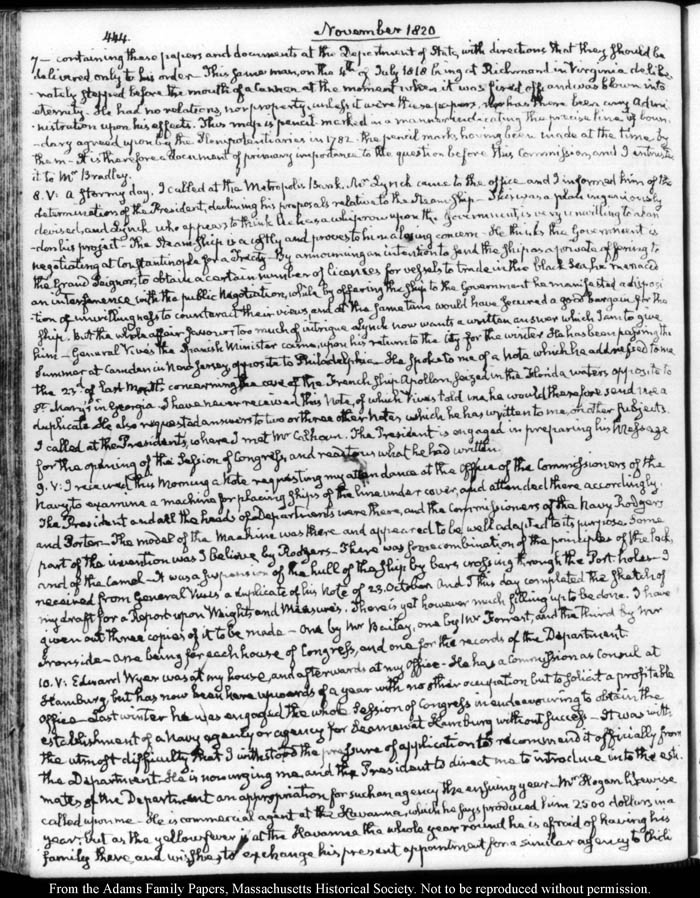 444
November 1820
7— containing these papers and documents at the Department of State, with directions that they should be
delivered only to his order. This same man, on the 4th of July 1818 being at Richmond in Virginia delibe-
rately stepped before the mouth of a cannon at the moment when it was fired off, and was blown into
eternity. He had no relations, nor property, unless it were these papers, nor has there been any Admi-
nistration upon his effects. This map is pencil marked in a manner indicating the precise line of boun-
-dary agreed upon by the Plenipotentiaries in 1782. the pencil marks having been made at the time by
them. It is therefore a document of primary importance to the question before this Commission, and I intrusted
it to Mr Bradley.
8. V: A stormy day. I called at the Metropolis Bank. Mr Lynch came to the office and I informed him of the
determination of the President, declining his proposals relative to the Steam Ship— This was a plan ingeniously
devised, and Lynch who appears to think he has a whip row upon the Government, is very unwilling to aban
-don his project. The Steam Ship is a costly and proves to him a losing concern— He thinks the Government is
negotiating at Constantinople for a treaty. By announcing an intention to send the Ship as a private offering to
the Grand Seignor, to obtain a certain number of licences for vessels to trade in the black Sea, he menaced
an interference with the public Negotiation, while by offering the Ship to the Government he manifested a disposi
-tion of unwillingness to counteract their views, and at the same time would have secured a good bargain for the
Ship. But the whole affair savours too much of intrigue. Lynch now wants a written answer which I am to give
him— General Vives the Spanish Minister came, upon his return to the City for the winter. He has been passing the
Summer at Camden in New Jersey, opposite to Philadelphia. He spoke to me of a Note which he addressed to me
the 23d of last Month concerning the case of the French Ship Apollon, seized in the Florida waters opposite to
St Mary's in Georgia. I have never received this Note, of which Vives told me he would therefore send me a
duplicate. He also requested answers to two or three other Notes which he has written to me, on other subjects.
I called at the Presidents, where I met Mr Calhoun. The President is engaged in preparing his Message
for the opening of the Session of Congress, and read to us what he had written.
9. V: I received this Morning a Note requesting my attendance at the Office of the Commissioners of the
Navy to examine a machine for placing ships of the line under cover, and attended there accordingly.
The President and all the heads of Departments were there, and the Commissioners of the Navy Rodgers
and Porter— The model of the Machine was there and appeared to be well adapted to its purpose. Some
part of the invention was I believe by Rodgers— There was some combination of the principles of the lock,
and of the Camel— It was a suspension of the hull of the Ship by bars crossing through the Port holes— I
received from General Vives a duplicate of his Note of 23. October. And I this day completed the Sketch of
my draft for a Report upon Weights and Measures. There is yet however much filling up to be done. I have
given out three copies of it to be made— One by Mr Bailey, one by Mr Forrest, and the third by Mr
Ironside— One being for each house of Congress, and one for the records of the Department.
10. V: Edward Wyer was at my house, and afterwards at my Office— He has a Commission as Consul at
Hamburg, but has now been here upwards of a year with no other occupation but to solicit a profitable
Office— Last winter he was engaged the whole Session of Congress in endeavouring to obtain the
establishment of a navy agency or agency for Seamen at Hamburg without success— It was with
the utmost difficulty that I withstood the pressure of application to recommend it officially from
the Department. He is now urging me, and the President to direct me to introduce into the esti-
mates of the Department an appropriation for such an agency the ensuing year— Mr Hogan likewise
called upon me— He is commercial agent at the Havanna, which he says produced him 2500 dollars in a
year; but as the yellow fever is at the Havanna the whole year round he is afraid of having his
family there, and wishes to exchange his present appointment for a similar agency to Chili
From the Adams Family Papers, Massachusetts Historical Society. Not to be reproduced without permission.